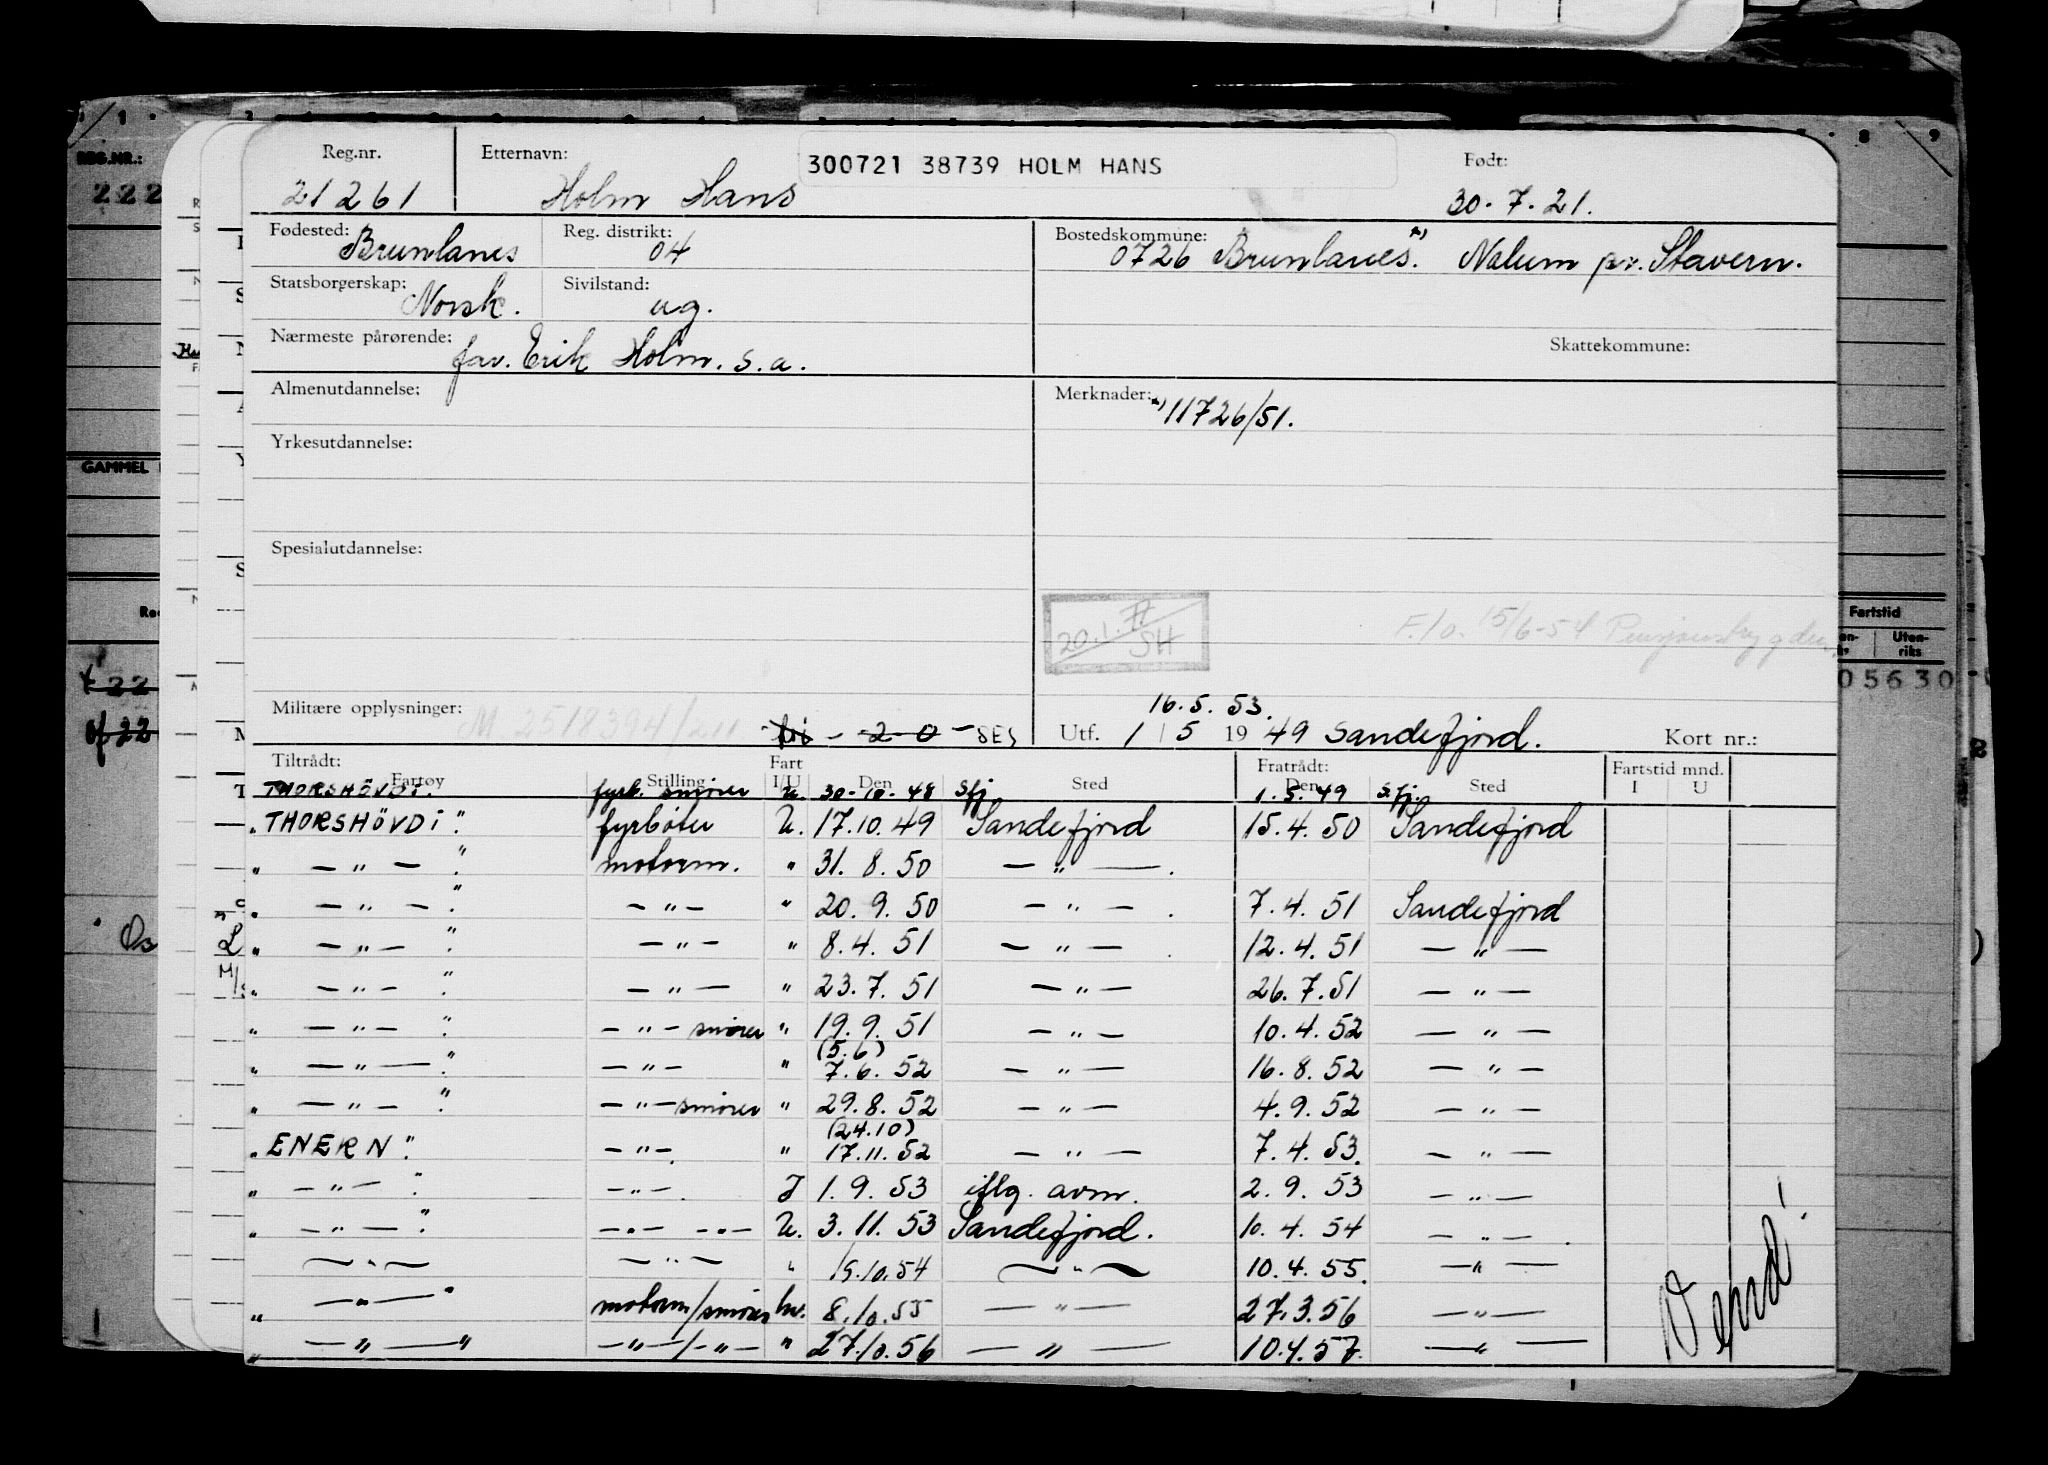 Reg.nr. Etternavn: 300721 38739 HOLM HANS Født:
21261 Holm Hans 30.7.21.
Fødested: Brunlanes Reg. distrikt: 04 Bostedskommune: 0726 Brunlanes. x) Nalum pr. Stavern.
Statsborgerskap: Norsk. Sivilstand: ug.
Nærmeste pårørende: far. Erik Holm. s.a. Skattekommune:
Almenutdannelse: Merknader: x) 11726/51.
Yrkesutdannelse:
Spesialutdannelse:
20.1.77 SH
F.l.o. 15/6-54 Pensjonstrygden
16.5.53.
Militære opplysninger: M. 2518394/211 - 2 0 - SES Utf. 1/5 1949 Sandefjord. Kort nr.:
Tiltrådt: Fart Fratrådt: Fartstid mnd.
Fartøy Stilling I/U Den Sted Den Sted I U
THORSHÖVDI fyrb. smører u. 30-10-48 Sfj 1.5.49 S.fj.
"THORSHÖVDI". fyrbøter U. 17.10.49 Sandefjord 15.4.50 Sandefjord
" — " — ". motorm. " 31. 8. 50 — " — .
" — " — ". — " — " 20. 9. 50 — " — . 7.4.51 Sandefjord
" — " — ". — " — " 8. 4. 51 — " — . 12.4.51 — " —
" — " — ". — " — " 23. 7. 51 — " — 26.7.51 — " —
" — " — ". — " — smører " 19. 9. 51 — " — 10.4.52 — " —
" — " — ". — " — " (5.6) 7.6.52 — " — 16.8.52 — " —
" — " — ". — " — smører " 29.8.52 — " — 4.9.52 — " —
"ENERN". — " — . " (24.10) 17.11.52 — " — 7.4.53. — " —
" — " — ". — " — . I 1.9.53 iflg. avm. 2.9.53 — " —
" — " — ". — " — — " — U. 3.11.53 Sandefjord. 10.4.54 — " — .
— " — — " — " 15.10.54 — " — 10.4.55. — " —
" — " — " motorm/smører hv. 8.10.55 — " — 27.3.56 — " —
" — " — " — " — / — " — " 27.10.56 — " — 10.4.57. — " —
Vend!
REG.NR.:
222
GAMMEL
Fartstid
Uten-
riks
05630